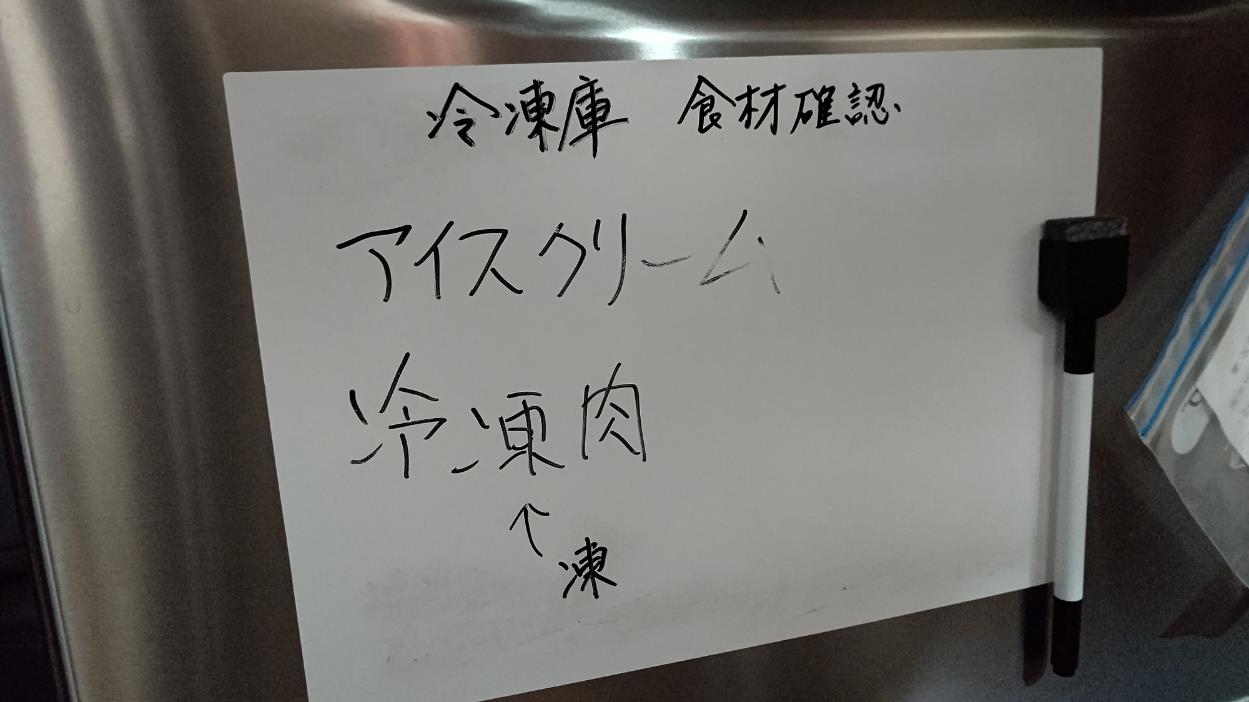 冷凍庫 食材確認
アイスクリーム
冷凍肉
↑
凍